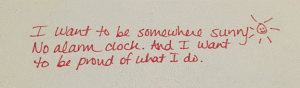 I want to be somewhere sunny
No alarm clock. And I want
to be proud of what I do.